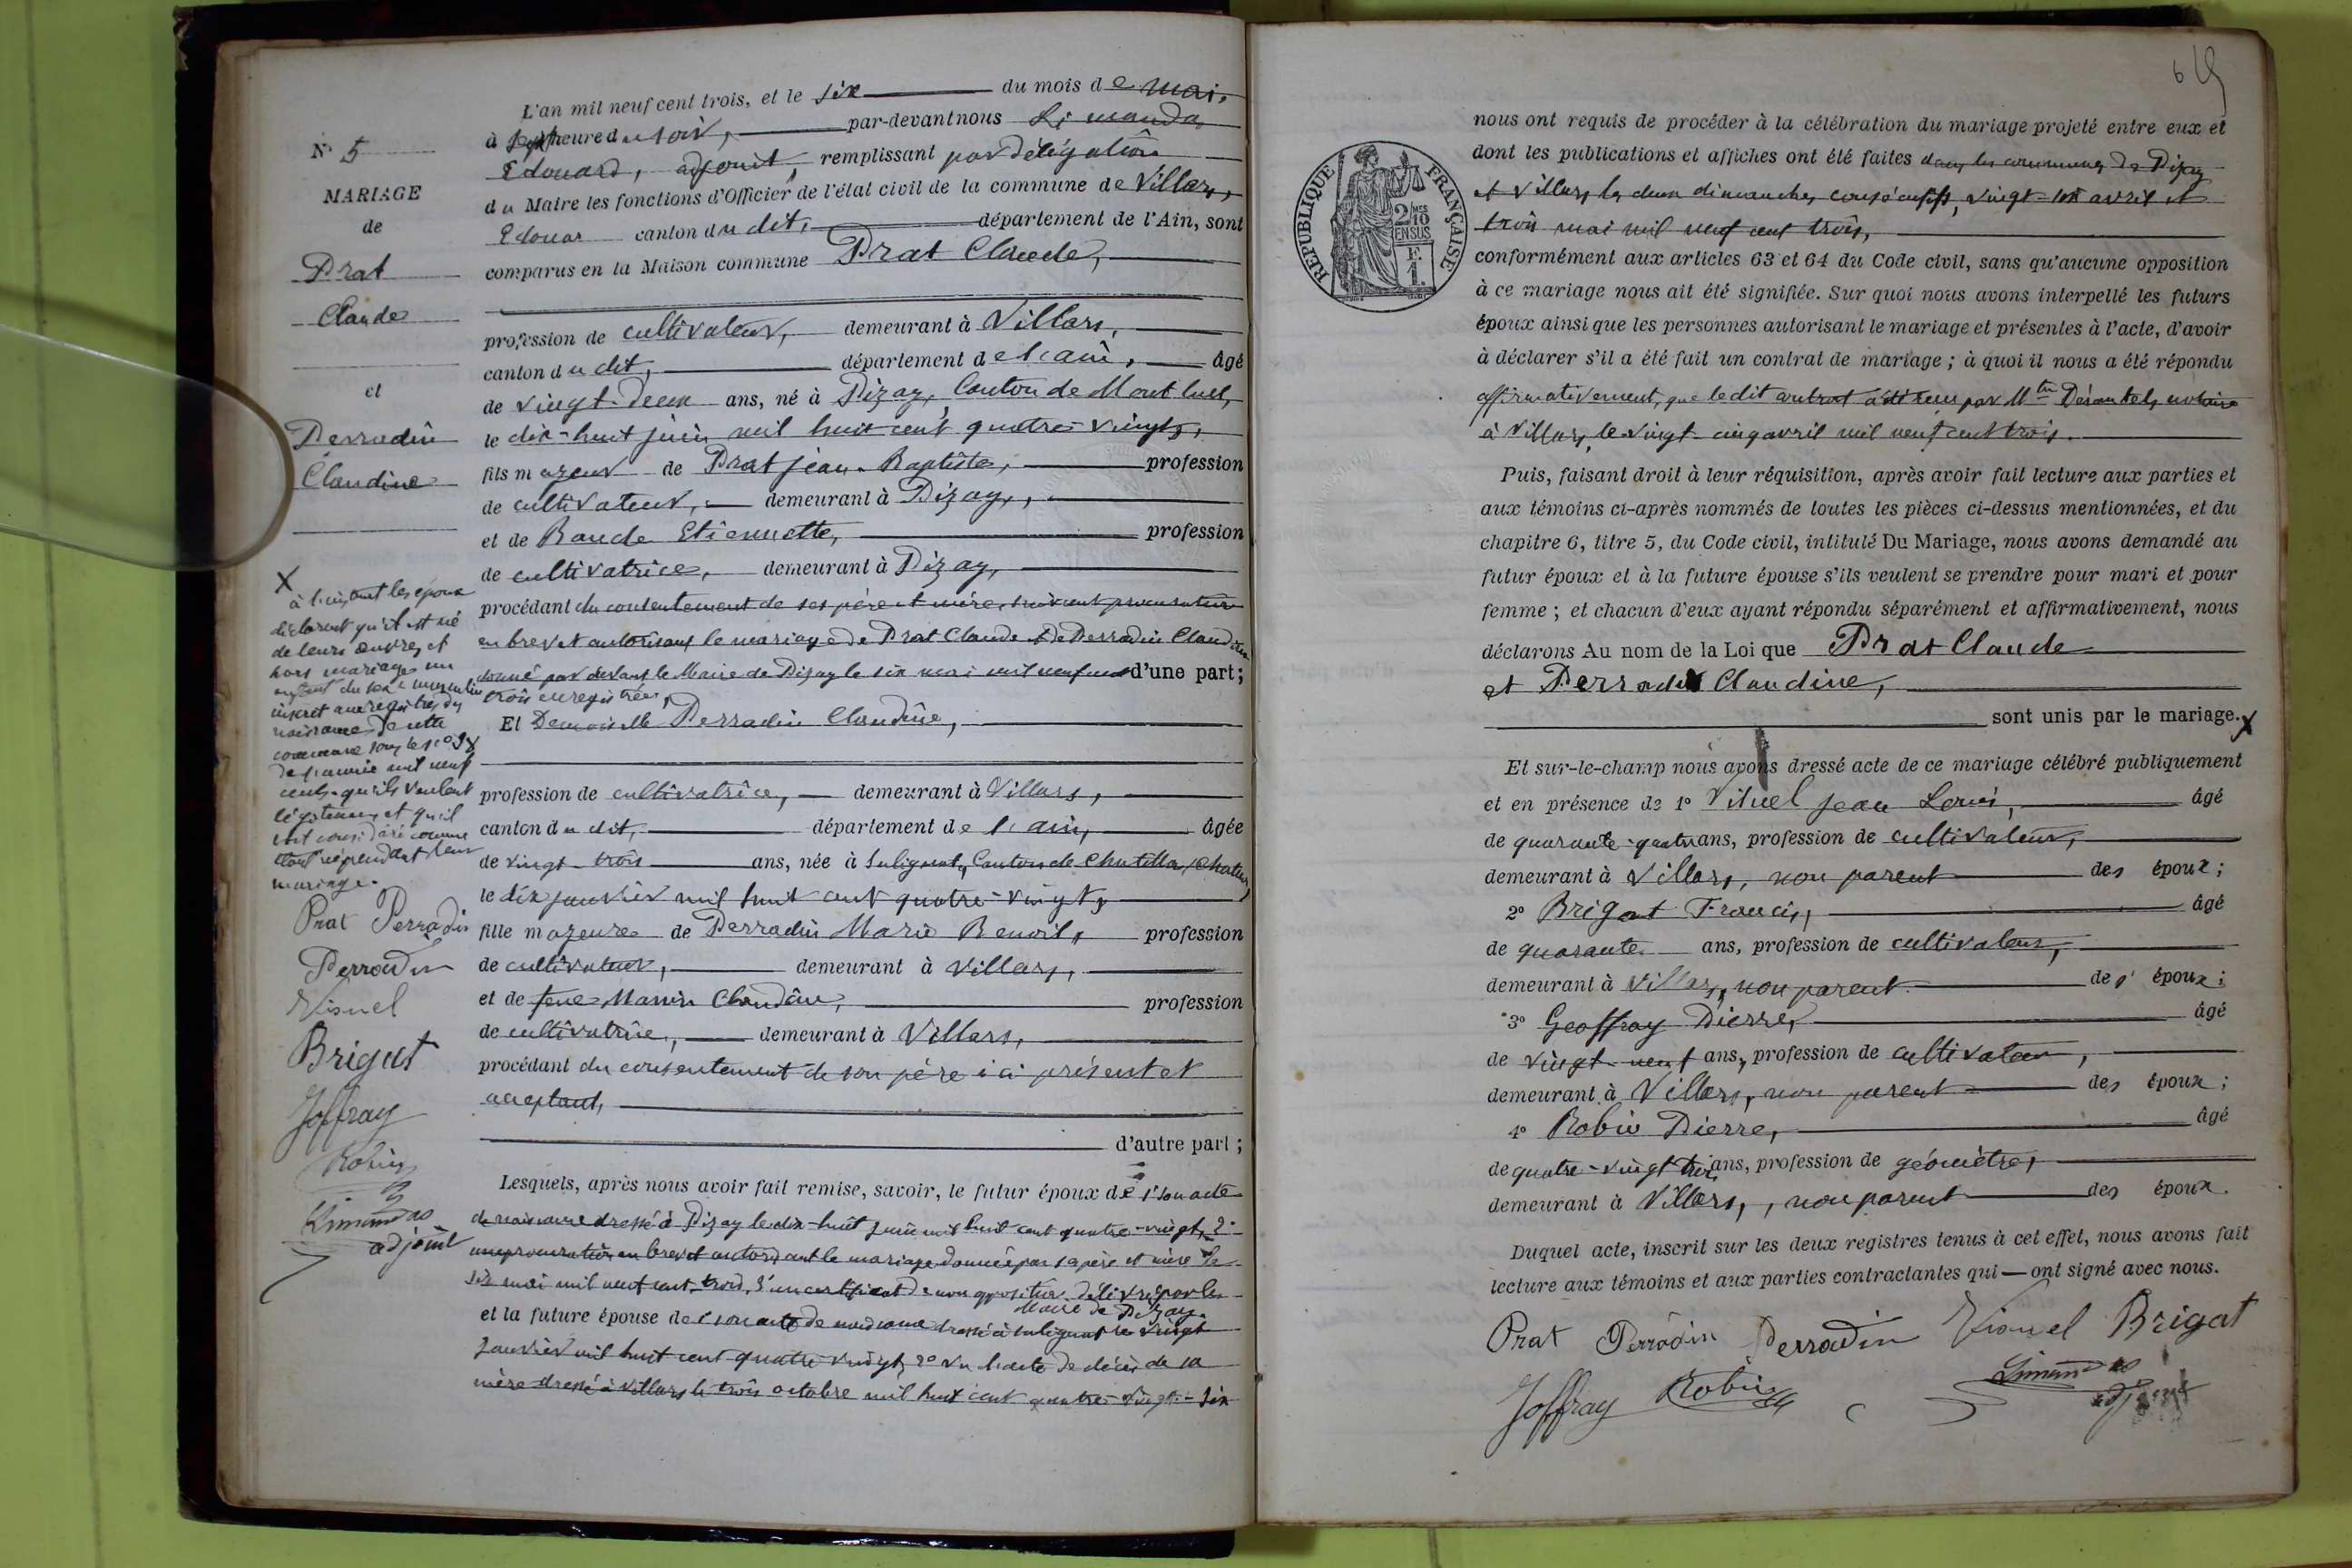 N° 5
MARIAGE
de
Prat
Claude
et
Perradin
Claudine
X
à l'instant les époux
déclarent qu'il est né
de leurs œuvres et
hors mariage un
enfant du sexe masculin
inscrit aux registres des
naissances de cette
commune sous le n°
de l'année mil neuf
cent qu'ils veulent
légitimer et qu'il
soit considéré comme
tout né pendant leur
mariage.
Prat Perradin
Perradin
Visuel
Brigat
Joffray
Robin
Limandas
adjoint
L'an mil neuf cent trois, et le six du mois de mai,
à sept heure du soir, par-devant nous Limandas
Edouard, adjoint, remplissant par délégation
du Maire les fonctions d'Officier de l'état civil de la commune de Villars,
Edouar canton du dit, département de l'Ain, sont
comparus en la Maison commune Prat Claude,
profession de cultivateur, demeurant à Villars,
canton du dit, département de l'ain, âgé
de vingt-deux ans, né à Pizay, Canton de Montluel,
le dix-huit juin mil huit cent quatre-vingts,
fils majeur de Prat Jean-Baptiste, profession
de cultivateur, demeurant à Pizay,
et de Baude Etiennette, profession
de cultivatrice, demeurant à Pizay,
procédant du consentement de ses père et mère, suivant procuration
en brevet autorisant le mariage de Prat Claude & de Perradin Claudine
donné par devant le Maire de Pizay le six mai mil neuf cent d'une part;
trois enregistrée,
Et Demoiselle Perradin Claudine,
profession de cultivatrice, demeurant à Villars,
canton du dit, département de l'ain, âgée
de vingt-trois ans, née à Sulignat, Canton de Chatillon s/Chal
le dix janvier mil huit cent quatre-vingts
fille majeure de Perradin Marie Benoit, profession
de cultivateur, demeurant à Villars,
et de feue Manin Claudine, profession
de cultivatrice, demeurant à Villars,
procédant du consentement de son père ici présent et
acceptant,
d'autre part;
Lesquels, après nous avoir fait remise, savoir, le futur époux de 1° son acte
de naissance dressé à Pizay le dix-huit juin mil huit cent quatre-vingt, 2°
une procuration en brevet autorisant le mariage donnée par sa père et mère le
six mai mil neuf cent trois, 3° un certificat de non opposition délivré par le
Maire de Pizay.
et la future épouse de 1° son acte de naissance dressé à Sulignat le vingt
janvier mil huit cent quatre vingt, 2° vu l'acte de décès de sa
mère dressé à Villars le trois octobre mil huit cent quatre-vingt-six
6
REPUBLIQUE FRANÇAISE
2/10 EN SUS
nous ont requis de procéder à la célébration du mariage projeté entre eux et
dont les publications et affiches ont été faites dans les communes de Pizay
et Villars les deux dimanches consécutifs, vingt-six avril et
trois mai mil neuf cent trois,
conformément aux articles 63 et 64 du Code civil, sans qu'aucune opposition
à ce mariage nous ait été signifiée. Sur quoi nous avons interpellé les futurs
époux ainsi que les personnes autorisant le mariage et présentes à l'acte, d'avoir
à déclarer s'il a été fait un contrat de mariage; à quoi il nous a été répondu
affirmativement, que le dit contrat a été reçu par Mtre Désautels, notaire
à Villars, le vingt-cinq avril mil neuf cent trois.
Puis, faisant droit à leur réquisition, après avoir fait lecture aux parties et
aux témoins ci-après nommés de toutes les pièces ci-dessus mentionnées, et du
chapitre 6, titre 5, du Code civil, intitulé Du Mariage, nous avons demandé au
futur époux et à la future épouse s'ils veulent se prendre pour mari et pour
femme; et chacun d'eux ayant répondu séparément et affirmativement, nous
déclarons Au nom de la Loi que Prat Claude
et Perradin Claudine,
sont unis par le mariage. X
Et sur-le-champ nous avons dressé acte de ce mariage célébré publiquement
et en présence de 1° Visuel Jean Louis, âgé
de quarante-quatre ans, profession de cultivateur,
demeurant à Villars, non parent des époux;
2° Brigat Francis, âgé
de quarante ans, profession de cultivateur,
demeurant à Villars, non parent des époux;
3° Geoffray Pierre, âgé
de vingt-neuf ans, profession de cultivateur,
demeurant à Villars, non parent des époux;
4° Robin Pierre, âgé
de quatre-vingt trois ans, profession de géomètre,
demeurant à Villars, non parent des époux.
Duquel acte, inscrit sur les deux registres tenus à cet effet, nous avons fait
lecture aux témoins et aux parties contractantes qui — ont signé avec nous.
Prat Perradin Perradin Visuel Brigat
Joffray Robin Limandas
adjoint